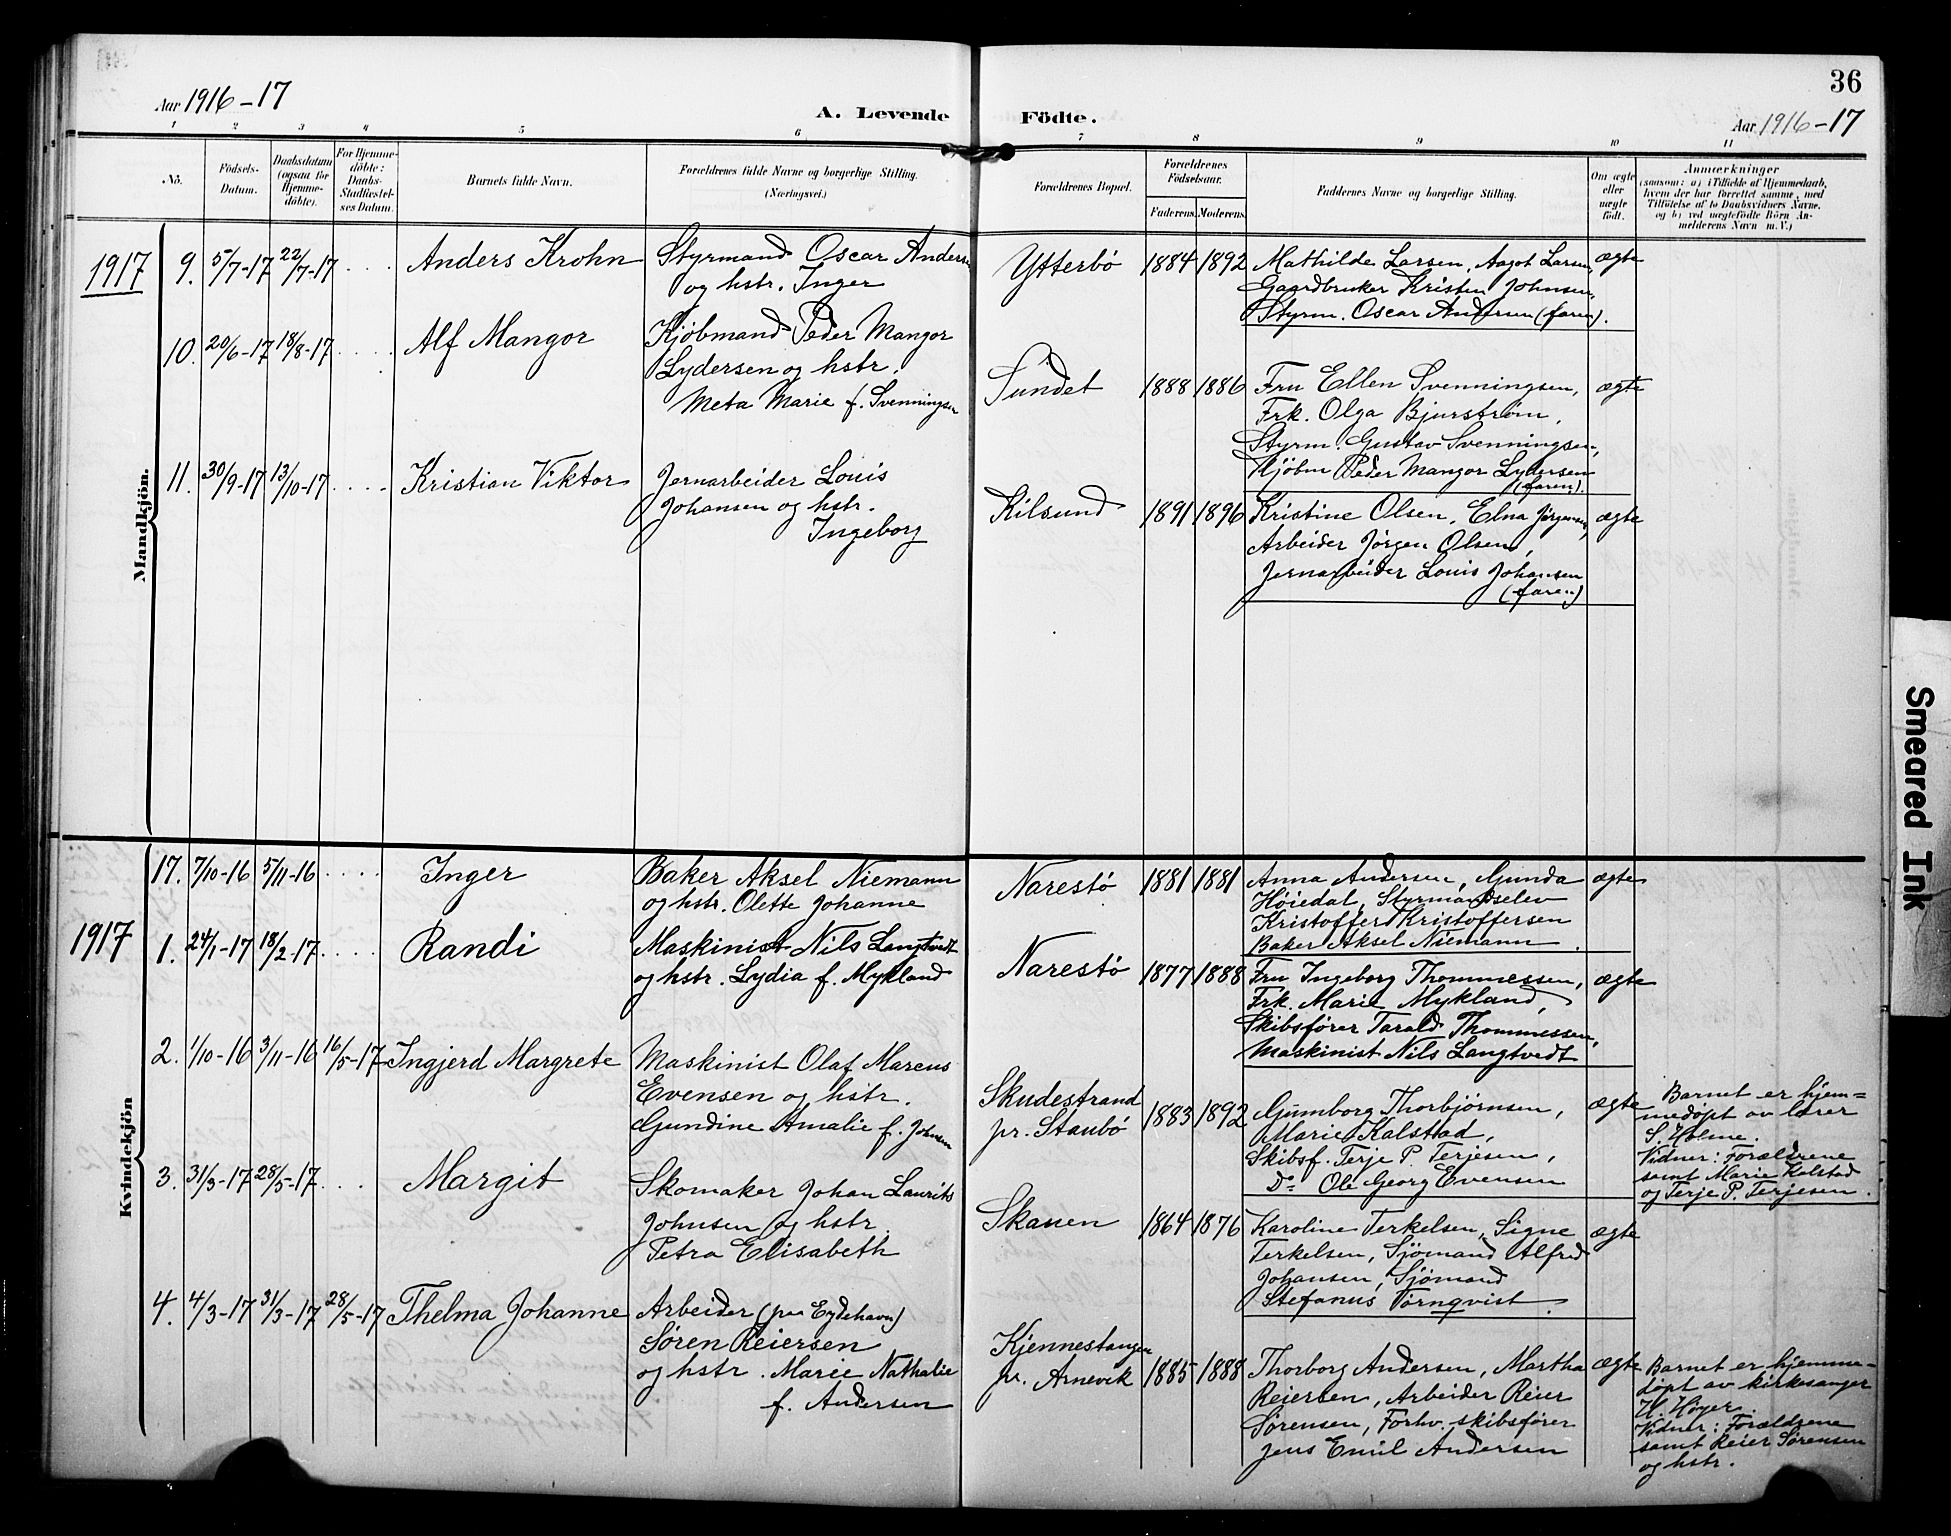 36
Aar 1916-17
A. Levende Födte.
Aar 1916-17
1 2 3 4 5 6 7 8 9 10 11
No.
Födsels-
Datum.
Daabsdatum
(ogsaa for
Hjemme-
döbte).
For Hjemme-
döbte:
Daabs-
Stadfæstel-
ses Datum.
Barnets fulde Navn.
Forældrenes fulde Navne og borgerlige Stilling.
(Næringsvei.)
Forældrenes Bopæl.
Forældrenes
Födselsaar.
Faderens. Moderens.
Faddernes Navne og borgerlige Stilling.
Om ægte
eller
uægte
født.
Anmærkninger
(saasom: a) i Tilfælde af Hjemmedaab,
hvem der har forrettet samme, med
Tilföielse af to Daabsvidners Navne.
og b) ved uægtefödte Börn An-
melderens Navn m. V.)
Mandkjön.
1917 9. 5/7-17 22/7-17 .... Anders Krohn
Styrmand Oscar Andersen
og hstr. Inger
Ytterbö 1884 1892
Mathilde Larsen, Aagot Larsen,
Gaardbruker Kristen Johnsen,
Styrm. Oscar Andersen (faren).
ægte
10. 20/6-17 18/8-17 .... Alf Mangor
Kjöbmand Peder Mangor
Lydersen og hstr.
Meta Marie f. Svenningsen
Sundet 1888 1886
Fru Ellen Svenningsen,
Frk. Olga Bjurström,
Styrm. Gustav Svenningsen,
Kjöbm Peder Mangor Lydersen
(faren).
ægte
11. 30/9-17 13/10-17 .... Kristian Viktor
Jernarbeider Louis
Johansen og hstr.
Ingeborg
Kilsund 1891 1896
Kristine Olsen, Elna Jörgensen,
Arbeider Jörgen Olsen,
Jernarbeider Louis Johansen
(faren)
ægte
Kvindekjön
17. 7/10-16 5/11-16 .... Inger
Baker Aksel Niemann
og hstr. Olette Johanne
Narestö 1881 1881
Anna Andersen, Gunda
Höiedal, Styrmandselev
Kristoffer Kristoffersen
Baker Aksel Niemann.
ægte
1917 1. 24/1-17 18/2-17 .... Randi
Maskinist Nils Langtvedt
og hstr. Lydia f. Mykland
Narestö 1877 1888
Fru Ingeborg Thommessen,
Frk. Marie Mykland,
Skibsförer Tarald Thommessen,
Maskinist Nils Langtvedt
ægte
2. 1/10-16 3/11-16 16/5-17 Ingjerd Margrete
Maskinist Olaf Marens
Evensen og hstr.
Gundine Amalie f. Johnsen
Skudestrand
pr. Staubö
1883 1892
Gumborg Thorbjörnsen,
Marie Kalstad,
Skibsf. Terje P. Terjesen,
Do Ole Georg Evensen
ægte
Barnet er hjem=
medöpt av lærer
S. Holme.
Vidner: Forældrene
samt Marie Kalstad
og Terje P. Terjesen.
3. 31/3-17 28/5-17 .... Margit
Skomaker Johan Laurits
Johnsen og hstr.
Petra Elisabeth
Skauen 1864 1876
Karoline Terkelsen, Signe
Terkelsen, Sjömand Alfred
Johansen, Sjömand
Stefanus Törnqvist.
ægte
4. 4/3-17 31/3-17 28/5-17 Thelma Johanne
Arbeider (paa Eydehavn)
Sören Reiersen
og hstr. Marie Nathalie
f. Andersen
Kjennestangen
pr. Arnevik
1885 1888
Thorborg Andersen, Martha
Reiersen, Arbeider Reier
Sörensen, Forhv. skibsförer
Jens Emil Andersen
ægte
Barnet er hjemme-
döpt av kirkesanger
H. Höyer.
Vidner: Forældrene
samt Reier Sörensen
og hstr.
Smeared Ink